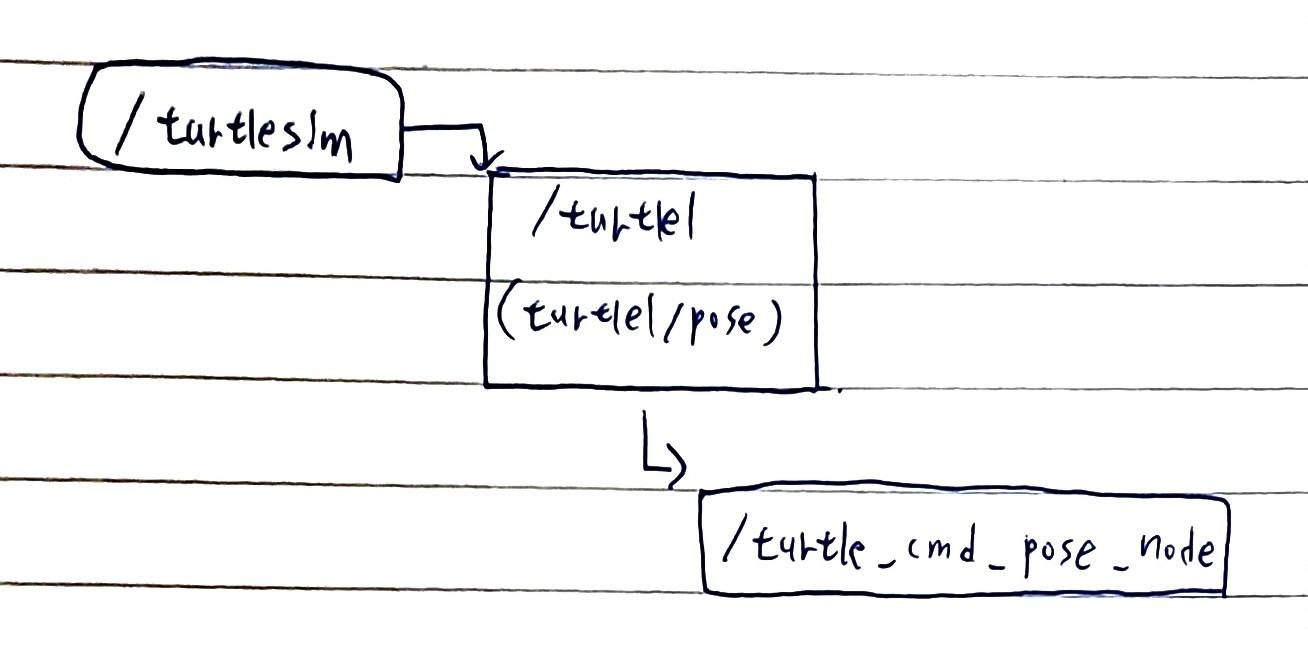 /turtlesim
/turtle1
(turtle1/pose)
/turtle_cmd_pose_node